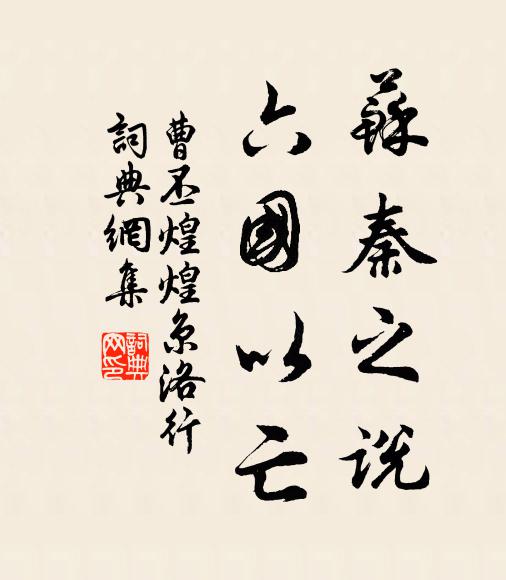 蘇秦之説
六國以亡
曹丕煌煌京洛行
詞典網集
詞典网印